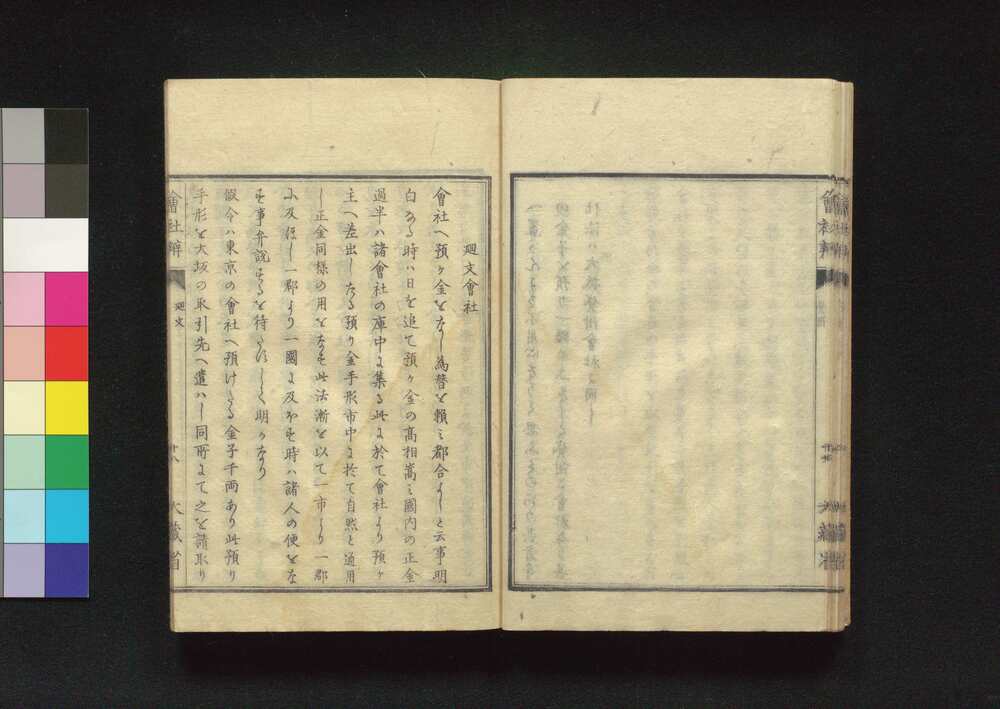 會社辨
大藏省
廻文會社
會社へ預ヶ金をなし為替を頼ミ都合よしと云事明
白なる時ハ日を追て預ヶ金の高相嵩ミ國内の正金
過半ハ諸會社の庫中に集る此に於て會社より預ヶ
主へ差出したる預り金手形市中に於て自然と通用
し正金同様の用をなす此法漸を以て一市より一郡
に及ほし一郡より一國に及ほす時ハ諸人の便をな
す事弁説するを待たすして明かなり
假令ハ東京の會社へ預けたる金子千両あり此預り
手形を大坂の取引先へ遣ハし同所にて之を請取り
會社辨
廻文
十八
大藏省